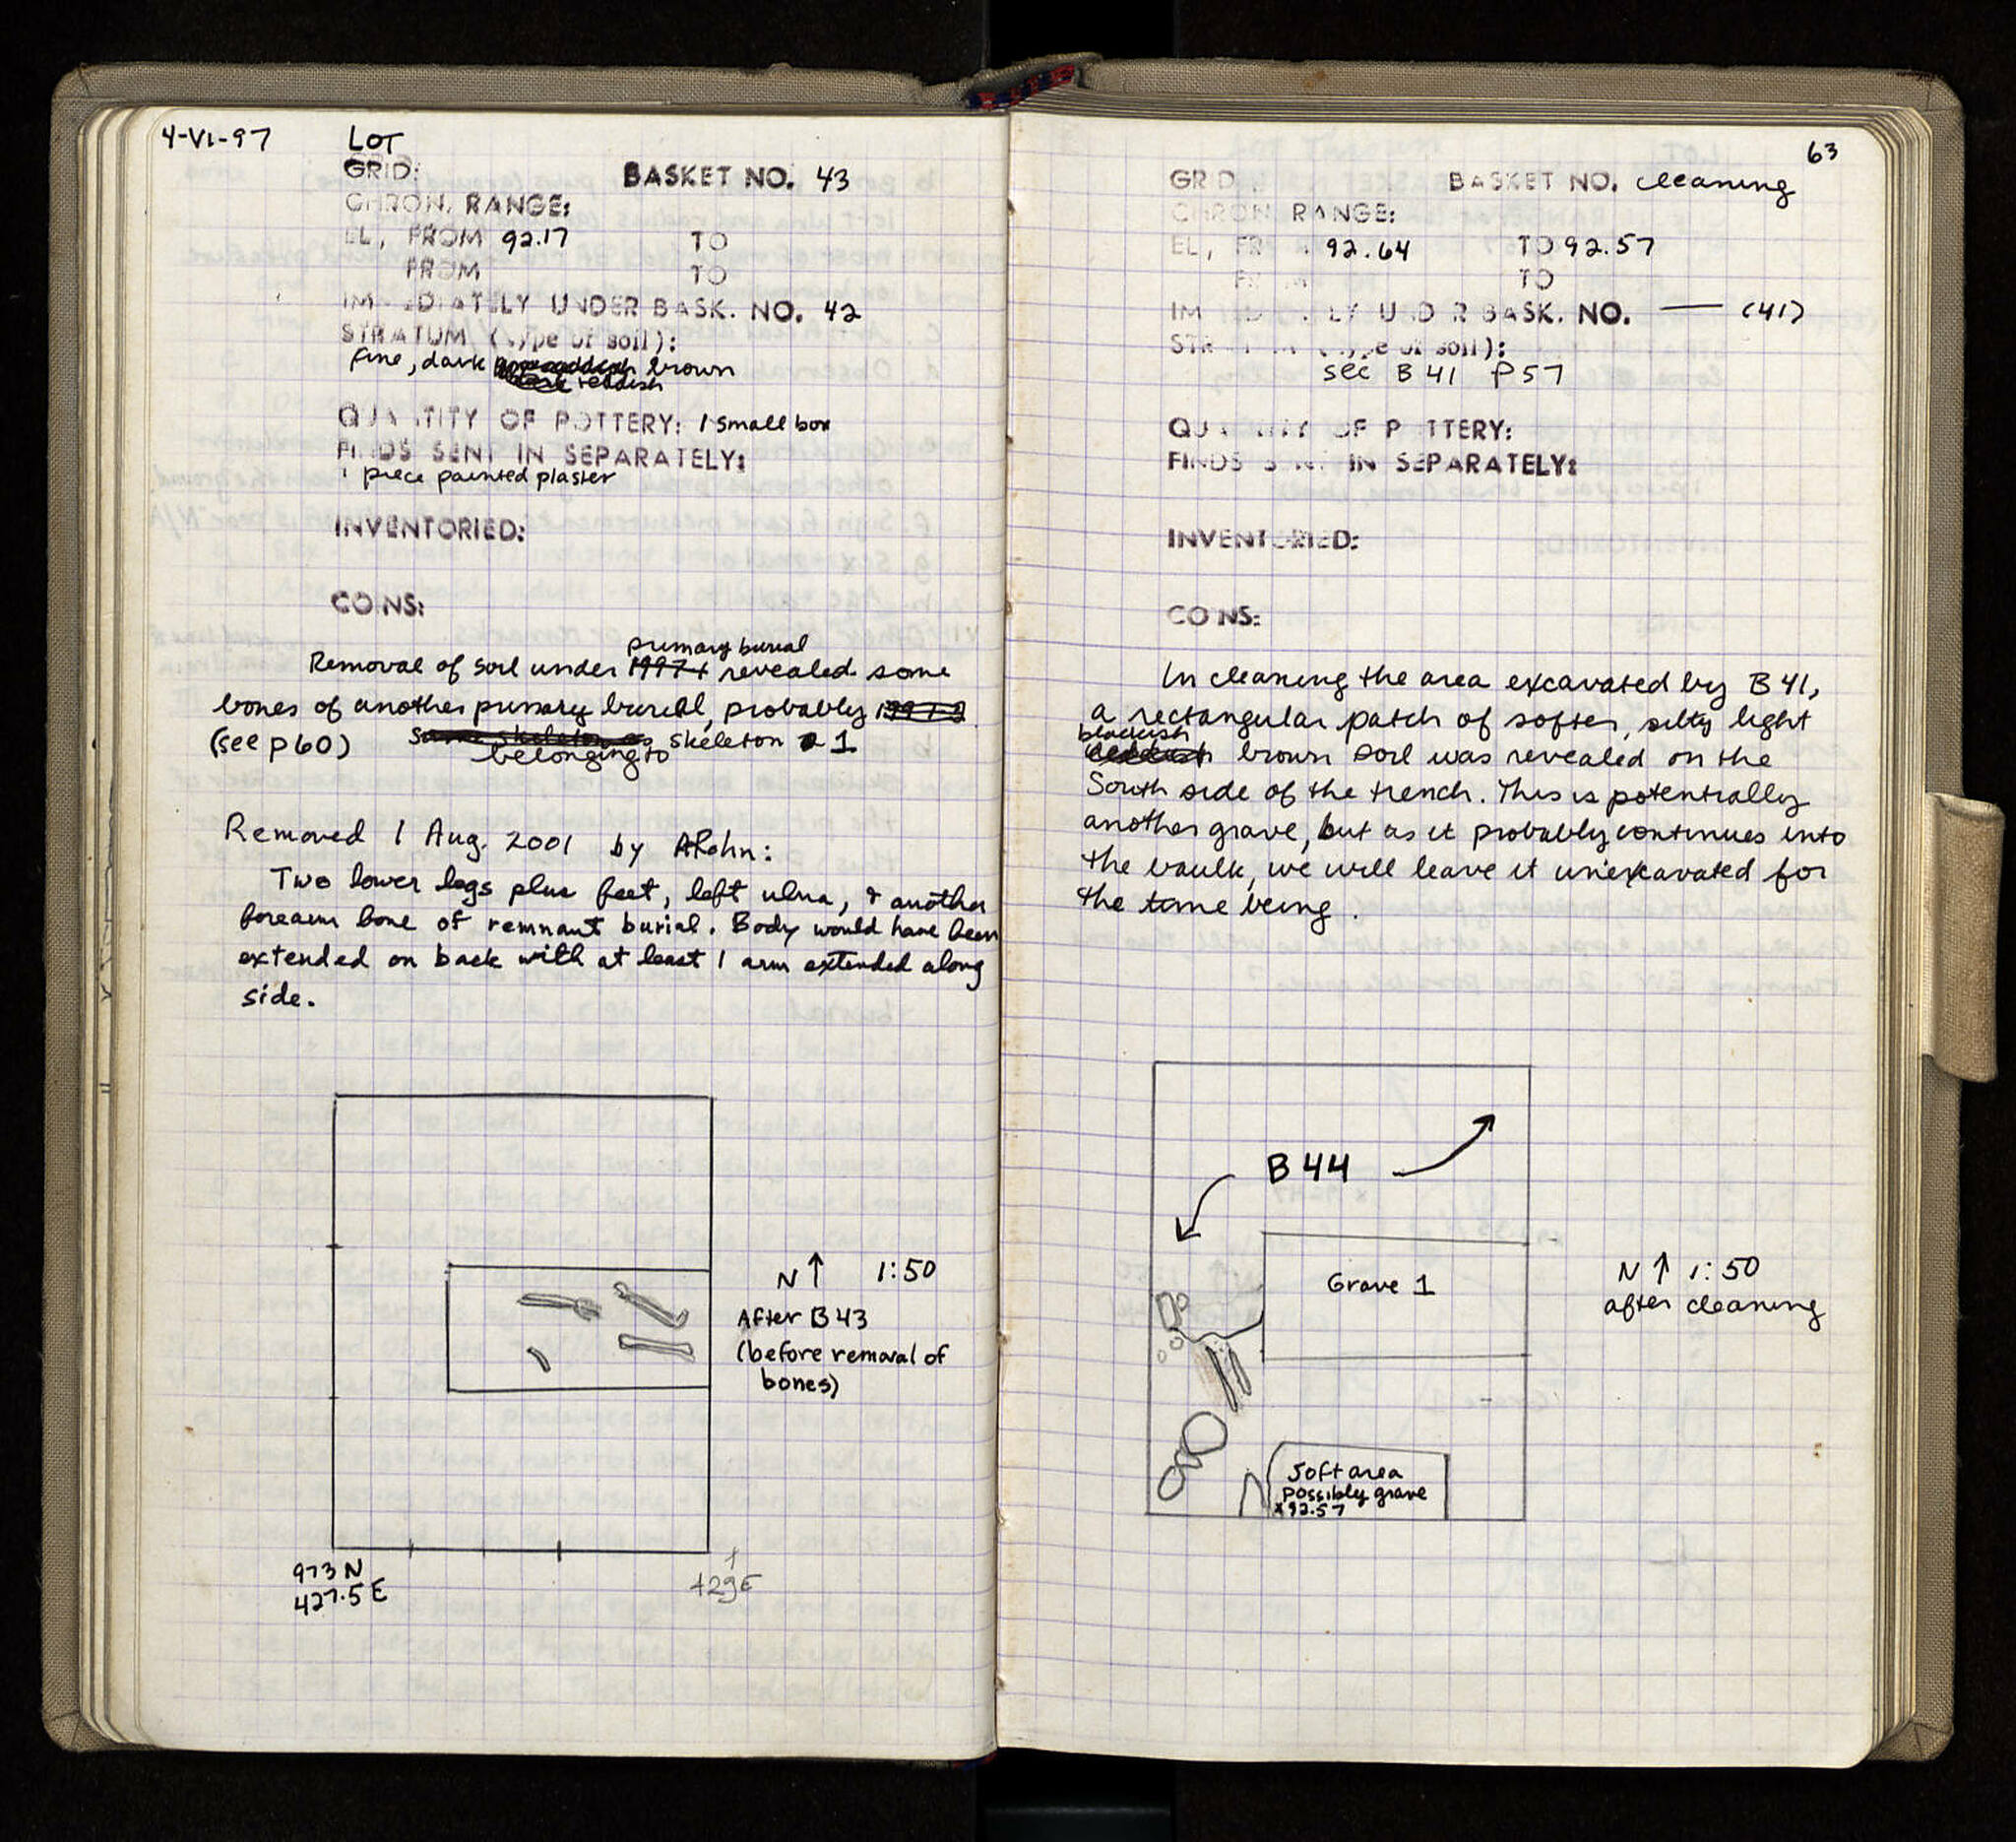 4-VI-97 LOT
GRID: BASKET NO. 43
CHRON. RANGE:
EL, FROM 92.17 TO
FROM TO
IMMEDIATELY UNDER BASK. NO. 42
STRATUM (type of soil):
fine, dark brown
reddish
QUANTITY OF POTTERY: 1 small box
FINDS SENT IN SEPARATELY:
1 piece painted plaster
INVENTORIED:
COINS:
primary burial
Removal of soil under 1997+ revealed some
bones of another primary burial, probably
(see p 60) same skeleton as skeleton 1
belonging to
Removed 1 Aug. 2001 by ARohn:
Two lower legs plus feet, left ulna, & another
forearm bone of remnant burial. Body would have been
extended on back with at least 1 arm extended along
side.
N↑ 1:50
After B43
(before removal of
bones)
973 N
427.5 E
429E
63
GRID BASKET NO. cleaning
CHRON RANGE:
EL, FROM 92.64 TO 92.57
FROM TO
IMMEDIATELY UNDER BASK. NO. — (41)
STRATUM (type of soil):
see B 41 p57
QUANTITY OF POTTERY:
FINDS SENT IN SEPARATELY:
INVENTORIED:
COINS:
In cleaning the area excavated by B 41,
a rectangular patch of softer, silty light
blackish
brown soil was revealed on the
South side of the trench. This is potentially
another grave, but as it probably continues into
the baulk, we will leave it unexcavated for
the time being.
B 44
Grave 1
N↑ 1:50
after cleaning
Soft area
possibly grave
x92.57